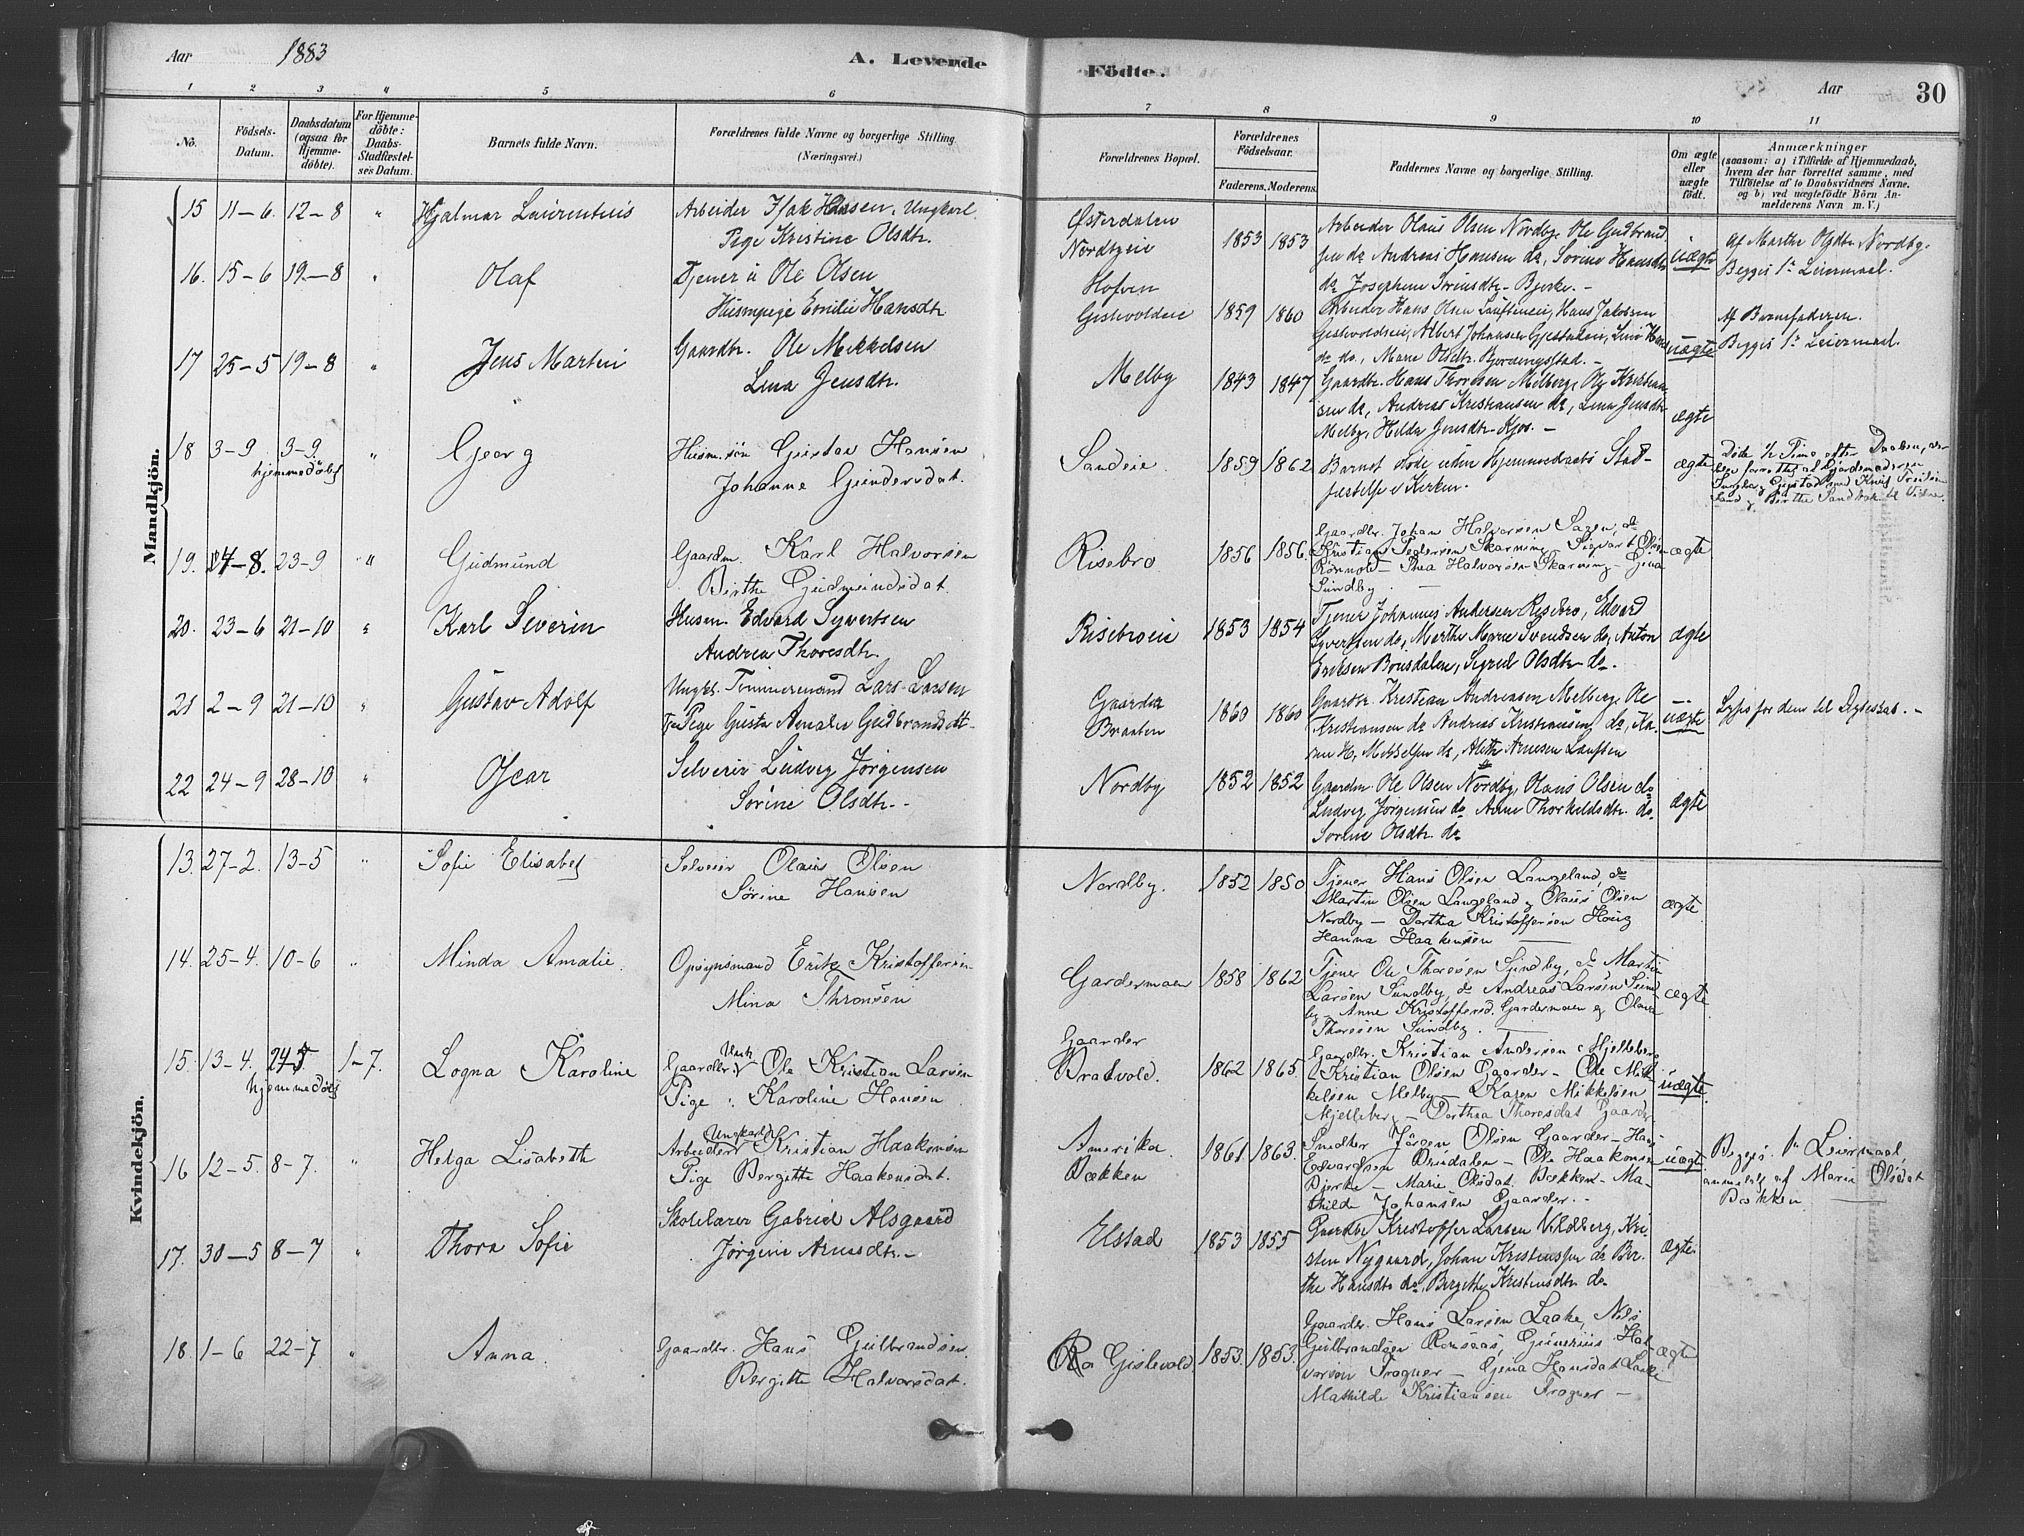 Aar 1883 A. Levende Födte. Aar 30
1 2 3 4 5 6 7 8 9 10 11
No.
Födsels-
Datum.
Daabsdatum
(ogsaa for
Hjemme-
döbte).
For Hjemme-
döbte:
Daabs-
Stadfæstel-
ses Datum.
Barnets fulde Navn.
Forældrenes fulde Navne og borgerlige Stilling
(Næringsvei.)
Forældrenes Bopæl.
Forældrenes
Födselsaar.
Faderens. Moderens.
Faddernes Navne og borgerlige Stilling.
Om ægte
eller
uægte
födt.
Anmærkninger
(saasom: a) i Tilfælde af Hjemmedaab,
hvem der har forrettet samme, med
Tilföielse af to Daabsvidners Navne.
og b) ved uægtefödte Börn An-
melderens Navn m. V.)
Mandkjön.
15 11-6. 12-8 " Hjalmar Laurentius
Arbeider Isak Hansen, Ungkarl.
Pige Kristine Olsdtr.
Østerdalen
Nordbyeie
1853 1853
Arbeider Olaus Olsen Nordby, Ole Gudbrand
sen do, Andreas Hansen do, Sorine Hansdtr
do, Josephine Sørensdtr. Bjerke. -
uægte
Af Marthe Olsdtr. Nordby.
Begges 1ste Leiermaal.
16. 15-6 19-8 " Olaf
Tjener Ole Olsen
Huspige Emilie Hansdtr.
Hofven
Gistevoldeie
1859 1860
Arbeider Hans Olsen
Hans Jakobsen
Gistevoldseie, Albert Johansen
do do, Marie Olsdtr.
uægte
Af Barnefaderen.
Begges 1ste Leiermaal.
17 25-5 19-8 " Jens Martin
Gaardbr. Ole Mikkelsen
Lina Jensdtr.
Melby
1843 1847
Gaardbr. Hans Thoresen Melberg, Ole Kristian
sen do, Andreas Kristiansen do, Lina Jensdtr
Melby, Hilda Jensdtr. Kjos. -
ægte
18 3-9 3-9. " Georg
hjemmedøbt
Husm.søn Gustav Hansen
Johanne Gundersdat.
Sandeie.
1859 1862
Barnet døde uden Hjemmedaabs Stad-
festelse i Kirken.
ægte
Døde ½ Time efter Daaben,
19. 24-8. 23-9 " Gudmund
Gaardm. Karl Halvorsen
Birthe Gudmundsdat.
Risebro
1856 1856.
Gaardbr. Johan Halvorsen Sagen, do
Kristian Pedersen Skarning, Sigvart Olsen
Thea Halvorsen Skarning - Gina
Sundby. -
ægte
20. 23-6 21-10 " Karl Severin
Husm. Edvard Syvertsen
Andrea Thoresdtr.
Risebroeie
1853 1854
Tjener Johannes Andersen Risebro, Edvard
Syvertsen do, Marthe Marie Svendsen do, Anton
Eriksen Brusdalen, Sigrid Olsdtr. do.
ægte
21 2-9 21-10 " Gustav Adolf
Ungkl. Tømmermand Lars Larsen
Pige Gusta Amalie Gudbrandsdtr.
Gaarder
Braaten
1860 1860
Gaardbr. Kristian Andreasen Melberg, Ole
Kristiansen do Andreas Kristiansen do,
Arnesen
uægte
22 24-9 28-10 " Oscar
Selveier Ludvig Jørgensen
Sorine Olsdtr.
Nordby
1852 1852
Gaardm Ole Olsen Nordby, Olaus Olsen do
Ludvig Jørgensen do Anne Thorkildsdtr. do.
Sorine Olsdtr. do
ægte
Kvindekjön.
13. 27-2. 13-5 " Sofie Elisabet
Selveier Olaus Olsen
Sørine Hansen
Nordby.
1852 1850
Tjener Hans Olsen Langeland, do
Martin Olsen Langeland, Olaus Olsen
Nordby - Dorthea Kristoffersen Haug
Hanna Haakensen
ægte
14. 25-4. 10-6 " Minda Amalie.
Opsynsmand Erik Kristoffersen
Mina Thronsen
Gardermoen
1858 1862
Tjener Ole Thoresen Sundby, do Martin
Larsen Sundby, do Andreas Larsen Sund
by - Anne Kristoffersd. Gardermoen og Olava
Thoresen Sundby.
ægte
15. 13-4. 24-5 1-7. Logna Karoline
hjemmedøbt
Gaardbr. Ungk. Ole Kristian Larsen
Pige Karoline Hansen
Gaarder
Bratvold.
1862 1865.
Gaardbr. Kristian Andersen Mjelleberg
Kristian Olsen Gaarder - Ole Mik
kelsen Melby - Karen Mikkelsen
Mjelleberg - Dorthea Thoresdat Gaarder
uægte
16 12-5. 8-7. " Helga Lisabeth
Arbeider Ungkarl Kristian Haakensen
Pige Bergitte Haakensdat.
Amerika
Bækken
1861 1863.
Snedker Jørgen Olsen Gaarder - Hans
Edvardsen - Ole Haakensen
Bjerke - Marie Olsdat Bækken - Ma-
thilde Johansen Gaarder. -
uægte
Begges 1ste Leiermaal,
anmeldt af Marie Olsdat
Bækken
17. 30-5 8-7 " Thora Sofie
Skolelærer Gabriel Alsgaard
Jørgine Arnesdtr. -
Elstad
1853 1855
Gaardbr Kristoffer Larsen Vildberg, Kri-
sten Nygaard, Johan Kristiansen do Ber
the Hansdtr do, Bergitte Kristiansdtr do
ægte
18. 1-6 22-7 " Anna.
Gaardbr. Hans Gulbrandsen.
Bergitte Halvorsdat.
Ro Gistevold
1853. 1853.
Gaardbr. Hans Larsen Laake, Nils
Gulbrandsen Gunerius Hal
vorsen Trogner - Gina Hansdat Laake
Mathilde Kristiansen Trogner -
ægte